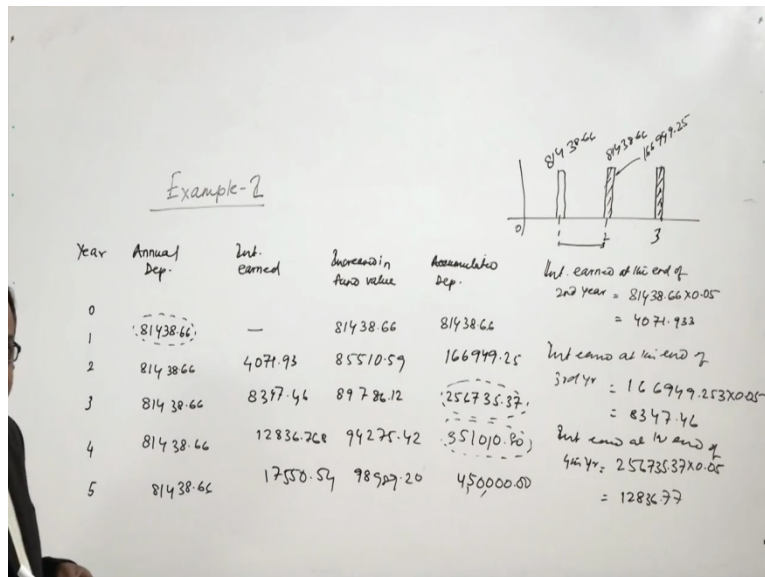 81438.66 81438.66 166949.25
0 2 3
Example-2
Year Annual Dep. Int. earned Increase in fund value Accumulated Dep.
0
1 81438.66 — 81438.66 81438.66
2 81438.66 4071.93 85510.59 166949.25
3 81438.66 8347.46 89786.12 256735.37
4 81438.66 12836.768 94275.42 351010.80
5 81438.66 17550.54 98989.20 450000.00
Int. earned at the end of
2nd year = 81438.66x0.05
= 4071.933
Int earned at the end of
3rd yr = 166949.253x0.05
= 8347.46
Int earned at the end of
4th yr = 256735.37x0.05
= 12836.77